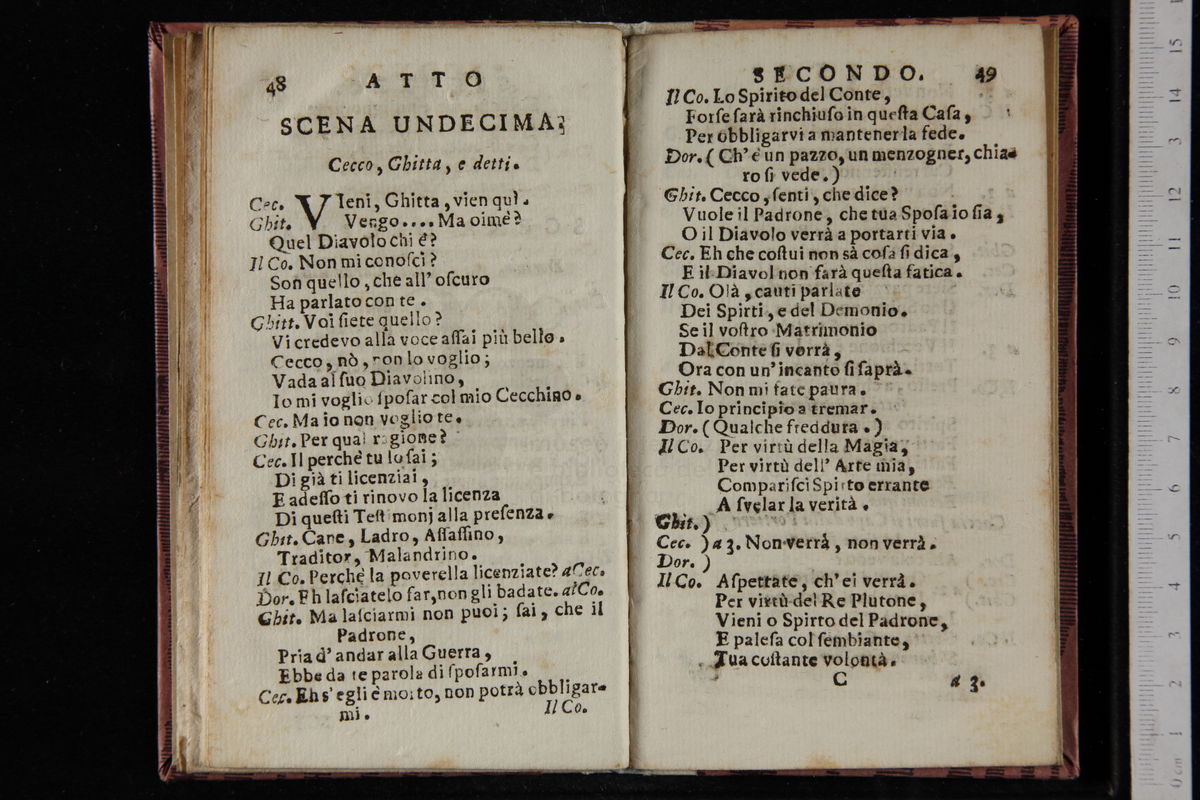 48 ATTO
SCENA UNDECIMA.
Cecco, Ghitta, e detti.
Cec. VIeni, Ghitta, vien quì.
Ghit. Vengo.... Ma oimè?
Quel Diavolo chi è?
Il Co. Non mi conosci?
Son quello, che all' oscuro
Ha parlato con te.
Ghitt. Voi siete quello?
Vi credevo alla voce assai più bello.
Cecco, nò, non lo voglio;
Vada al suo Diavolino,
Io mi voglio sposar col mio Cecchino.
Cec. Ma io non voglio te.
Ghit. Per qual ragione?
Cec. Il perchè tu lo sai;
Di già ti licenziai,
E adesso ti rinovo la licenza
Di questi Testimonj alla presenza.
Ghit. Cane, Ladro, Assassino,
Traditor, Malandrino.
Il Co. Perchè la poverella licenziate? a Cec.
Dor. Eh lasciatelo far, non gli badate. al Co.
Ghit. Ma lasciarmi non puoi; sai, che il
Padrone,
Pria d' andar alla Guerra,
Ebbe da te parola di sposarmi.
Cec. Eh s' egli è morto, non potrà obbligar-
mi.
Il Co.
SECONDO. 49
Il Co. Lo Spirito del Conte,
Forse sarà rinchiuso in questa Casa,
Per obbligarvi a mantener la fede.
Dor. (Ch' è un pazzo, un menzogner, chia-
ro si vede.)
Ghit. Cecco, senti, che dice?
Vuole il Padrone, che tua Sposa io sia,
O il Diavolo verrà a portarti via.
Cec. Eh che costui non sà cosa si dica,
E il Diavol non farà questa fatica.
Il Co. Olà, cauti parlate
Dei Spirti, e del Demonio.
Se il vostro Matrimonio
Dal Conte si vorrà,
Ora con un' incanto si saprà.
Ghit. Non mi fate paura.
Cec. Io principio a tremar.
Dor. (Qualche freddura.)
Il Co. Per virtù della Magia,
Per virtù dell' Arte mia,
Comparisci Spirto errante
A svelar la verità.
Ghit. )
Cec. ) a 3. Non verrà, non verrà.
Dor. )
Il Co. Aspettate, ch' ei verrà.
Per virtù del Re Plutone,
Vieni o Spirto del Padrone,
E palesa col sembiante,
Tua costante volontà.
C a 3.